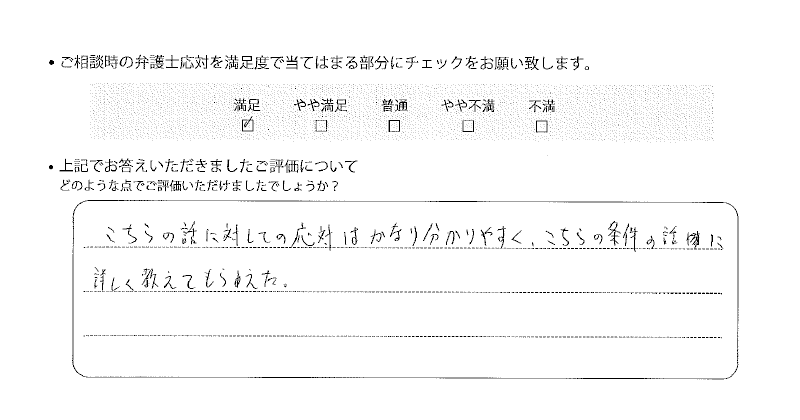 • ご相談時の弁護士応対を満足度で当てはまる部分にチェックをお願い致します。
満足 やや満足 普通 やや不満 不満
☑ ☐ ☐ ☐ ☐
• 上記でお答えいただきましたご評価について
どのような点でご評価いただけましたでしょうか？
こちらの話に対しての応対はかなり分かりやすく、こちらの条件の話に
詳しく教えてもらえた。